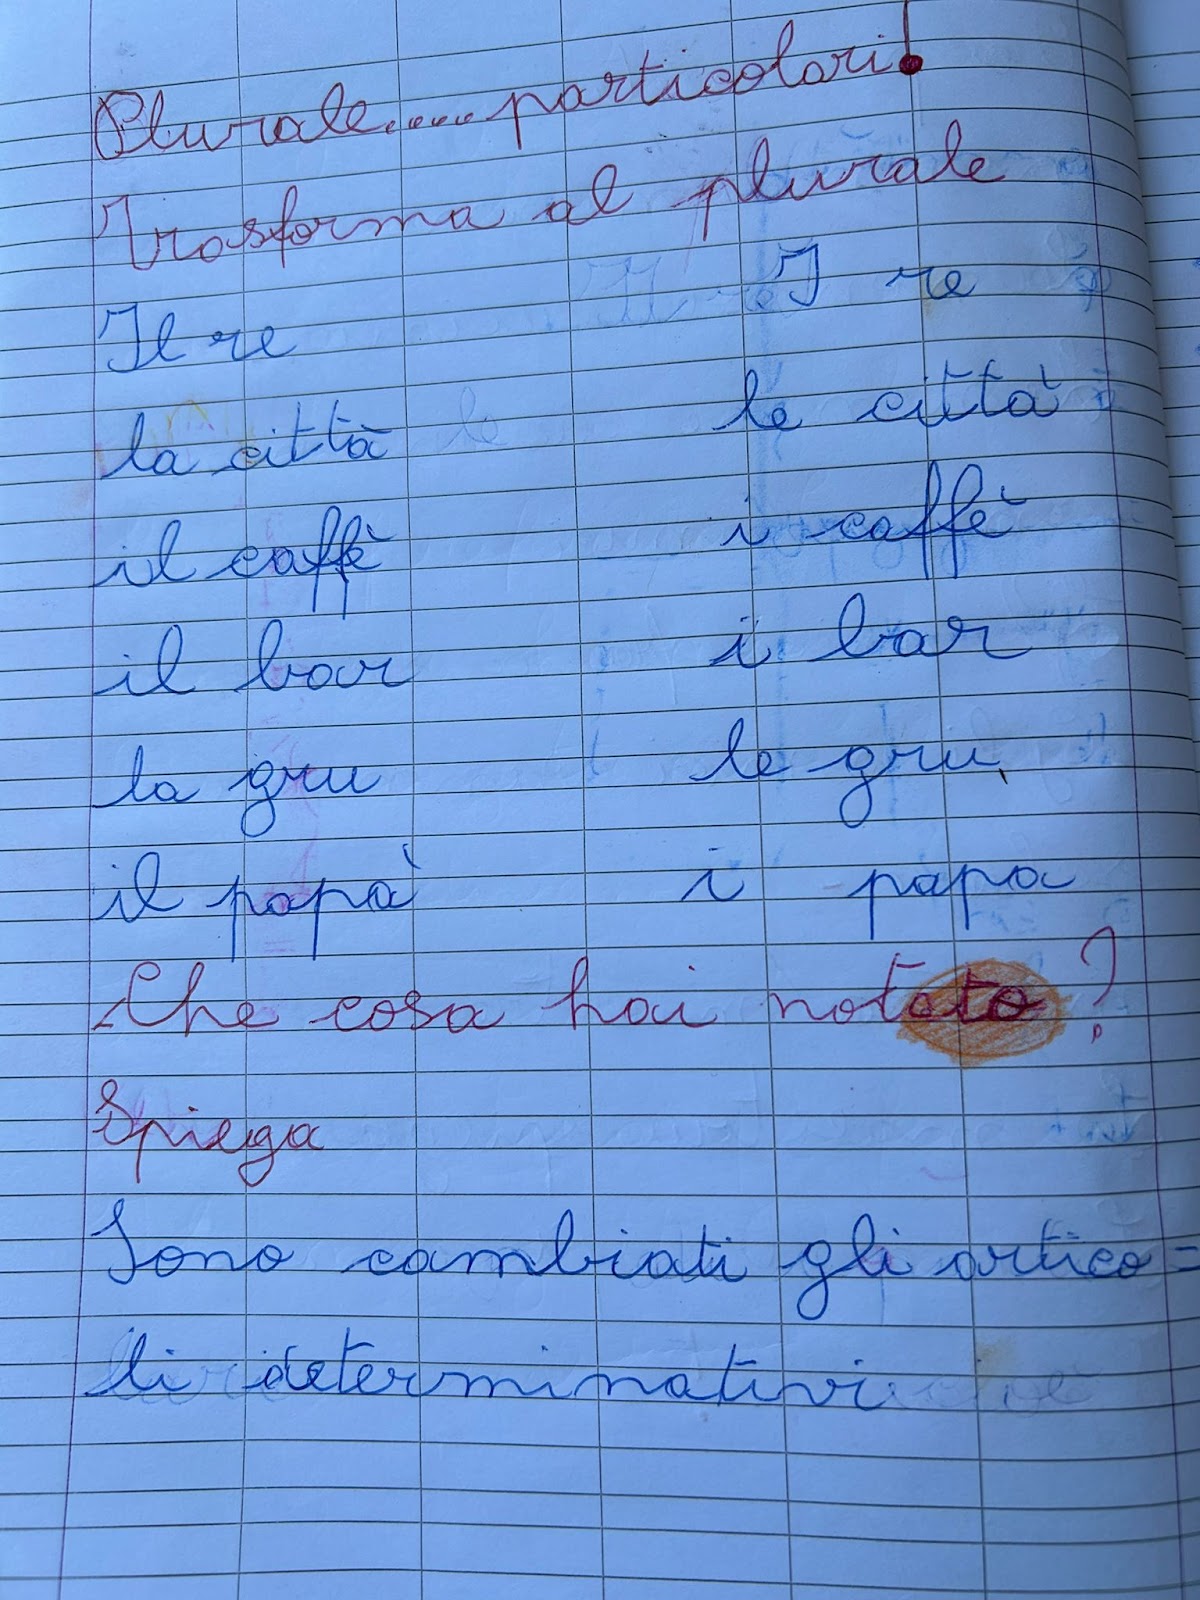 Plurale.... particolari!
Trasforma al plurale
Il re I re
la città le città
il caffè i caffè
il bar i bar
la gru le gru
il papà i papa
Che cosa hai notato?
Spiega
Sono cambiati gli artico=
li determinativi